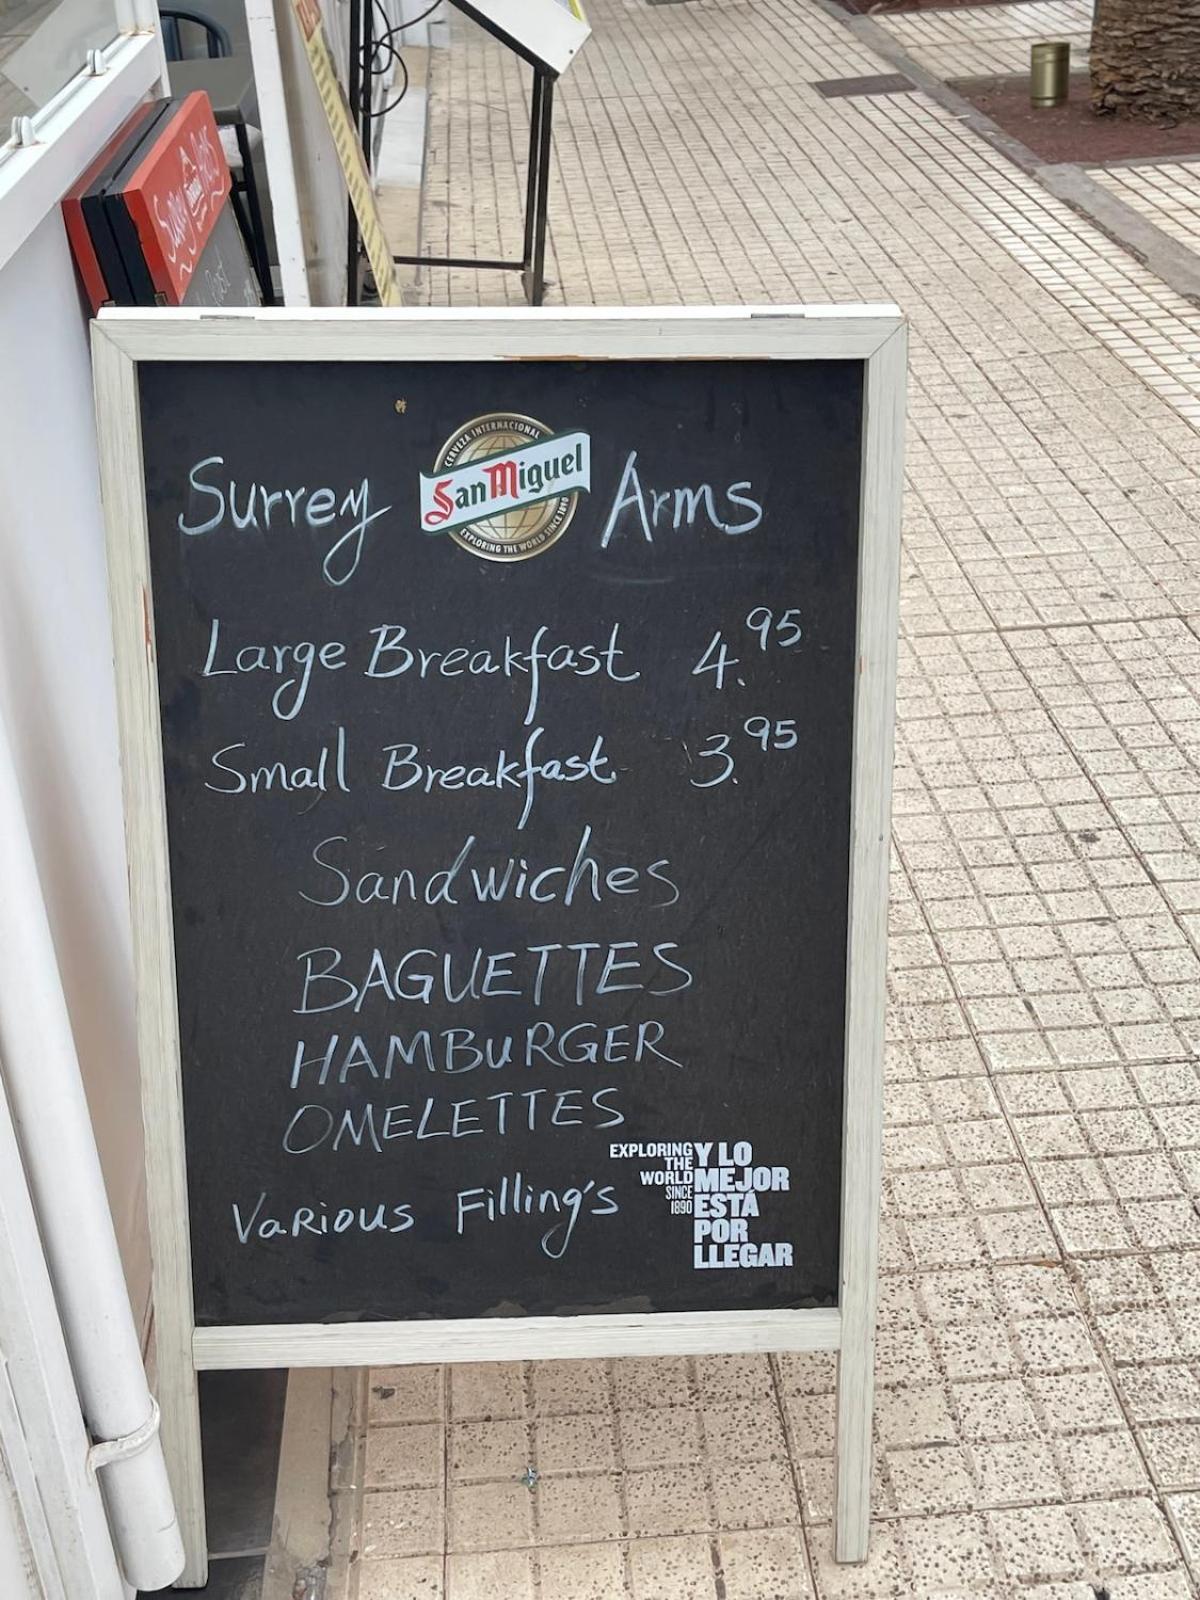 Surrey Arms
CERVEZA INTERNACIONAL
San Miguel
EXPLORING THE WORLD SINCE 1890
Large Breakfast 4.95
Small Breakfast 3.95
Sandwiches
BAGUETTES
HAMBURGER
OMELETTES
Various Filling's
EXPLORING
THE
WORLD
SINCE
1890
Y LO
MEJOR
ESTÁ
POR
LLEGAR
Surrey Arms